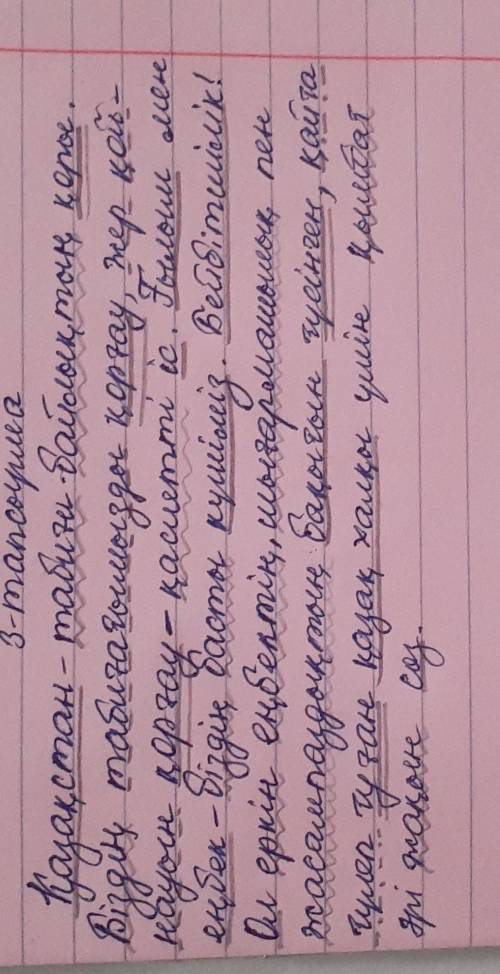 3-тапсырма
Қазақстан - табиғи байлықтың көрые.
Біздің табиғатымызды қорғау, жер қой-
науын қорғау - қасиетті іс. Ғылым мен
еңбек - біздің басты күшіміз. Бейбітшілік!
Ол еркін еңбектің, шығармашылық пен
жасампаздықтың бақытын түсінген, қайта
түлеп туған қазақ халқы үшін қымбат
әрі жақын сөз.